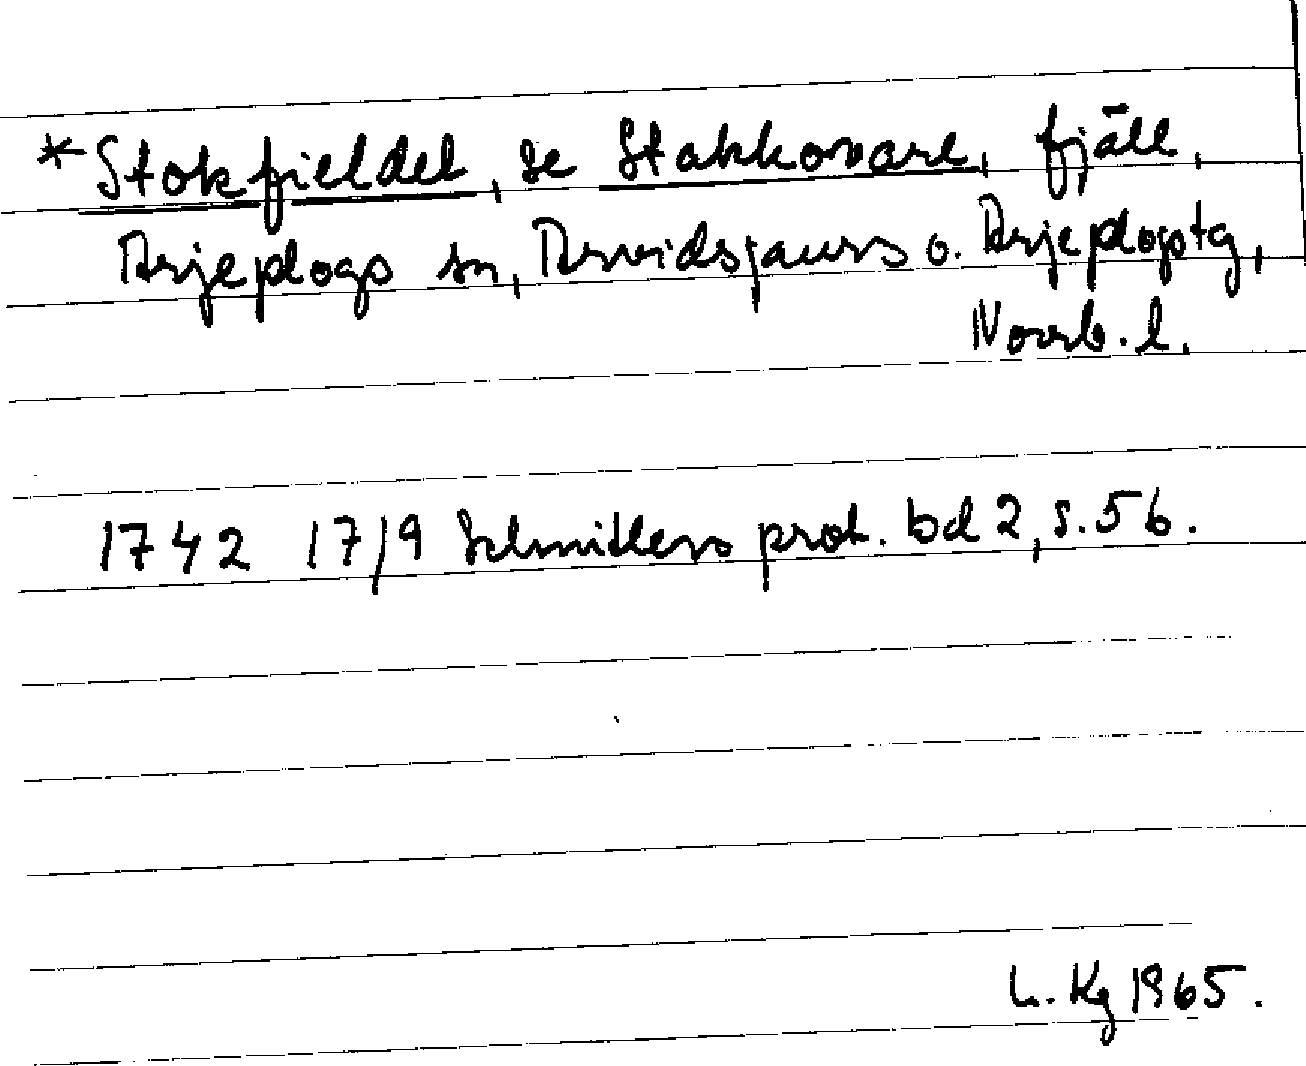 *Stokfieldet, se Stakkovare, fjäll,
Arjeplogs sn, Arvidsjaurs o. Arjeplogstg,
Norrb. l.
1742 17/9 Schnitlers prot. bd 2, s. 56.
L. Kg 1965.